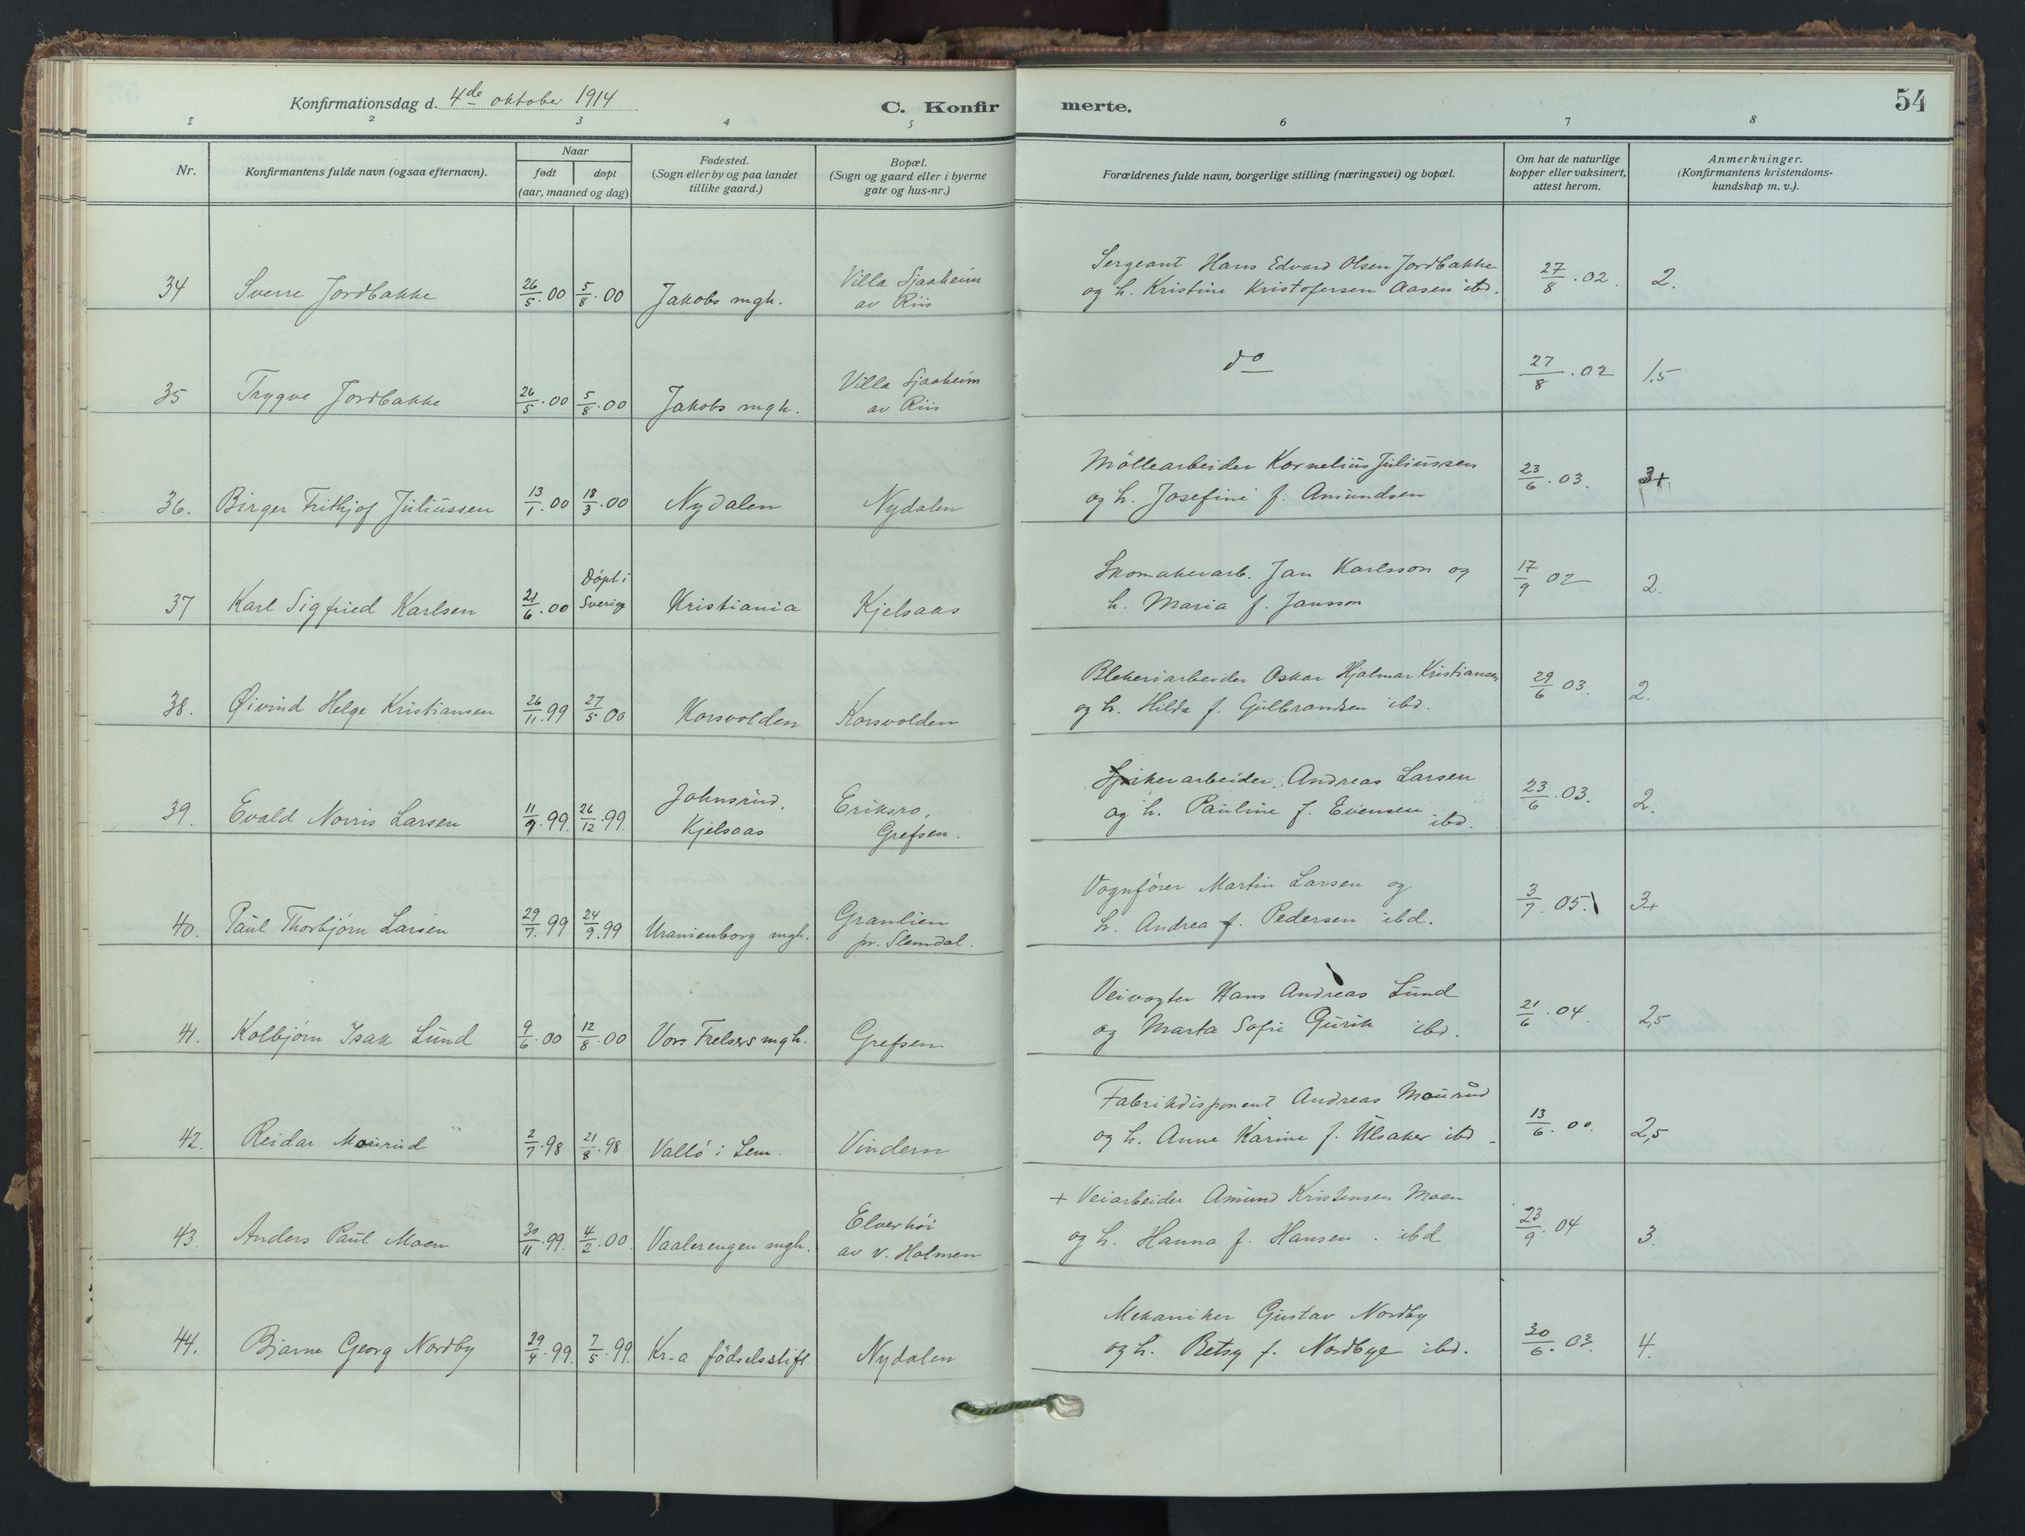 Konfirmationsdag d. 4de oktober 1914
C. Konfirmerte.
54
1 2 3 4 5 6 7 8
Nr.
Konfirmantens fulde navn (ogsaa efternavn).
Naar
født døpt
(aar, maaned og dag)
Fødested.
(Sogn eller by og paa landet
tillike gaard.)
Bopæl.
(Sogn og gaard eller i byerne
gate og hus-nr.)
Forældrenes fulde navn, borgerlige stilling (næringsvei) og bopæl.
Om hat de naturlige
kopper eller vaksinert,
attest herom.
Anmerkninger.
(Konfirmantens kristendoms-
kundskap m. v.).
34 Sverre Jordbakke 26/5.00 5/8.00 Jakobs mgh.
Villa Sjaaheim
av Riis
Sergeant Hans Edvard Olsen Jordbakke
og h. Kristine Kristofersen Aasen ibd.
27/8.02 2.
35 Trygve Jordbakke 26/5.00 5/8.00 Jakobs mgh.
Villa Sjaaheim
av Riis
do
27/8.02 1,5
36. Birger Frithjof Juliussen 13/1.00 18/3.00 Nydalen Nydalen
Möllearbeider Kornelius Juliussen
og h. Josefine f. Amundsen
23/6.03. 3+
37 Karl Sigfried Karlsen 21/6.00
Döpt i
Sverige
Kristiania Kjelsaas
Skomakerarb. Jan Karlsson og
h. Maria f. Jansson
17/9 02 2.
38. Øivind Helge Kristiansen 26/11.99 27/5.00 Korsvolden Korsvolden
Blekeriarbeider Oskar Hjalmar Kristiansen
og h. Hilda f. Gulbrandsen ibd.
29/6 03. 2.
39. Evald Norris Larsen 11/9.99. 26/12.99.
Johnsrud,
Kjelsaas
Eriksro,
Grefsen.
Spikerarbeider Andreas Larsen
og h. Pauline f. Evensen ibd.
23/6.03. 2.
40. Paul Thorbjørn Larsen 29/7.99 24/9.99 Uranienborg mgh.
Granlien
pr. Slemdal.
Vognfører Martin Larsen og
h. Andrea f. Pedersen ibd.
3/7.05. 3+
41. Kolbjørn Isak Lund 9/6.00 12/8.00 Vors Frelsers mgh. Grefsen
Veivogter Hans Andreas Lund
og Marta Sofie Gurik ibd.
21/6.04. 2,5
42. Reidar Mourud 2/7.98 21/8.98 Vallö i Sem. Vindern
Fabrikdisponent Andreas Mourud
og h. Anne Karine f. Ulsaker ibd
13/6.00. 2,5
43. Anders Paul Moen 30/11.99. 4/2.00. Vaalerengen mgh.
Elverhöi
av v. Holmen
+ Veiarbeider Amund Kristensen Moen
og h. Hanna f. Hansen. ibd
23/9.04 3.
44. Bjarne Georg Nordby 29/4.99. 7/5.99. Kr-a födselsstift. Nydalen
Mekaniker Gustav Nordby
og h. Betsy f. Nordbye ibd.
30/6.03. 4.